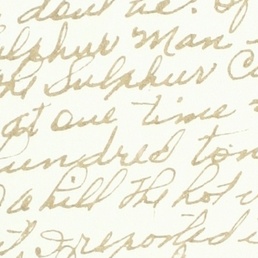 Sulphur Man
the Sulphur C
at one time
hundred ton
a hill the hot
I reported